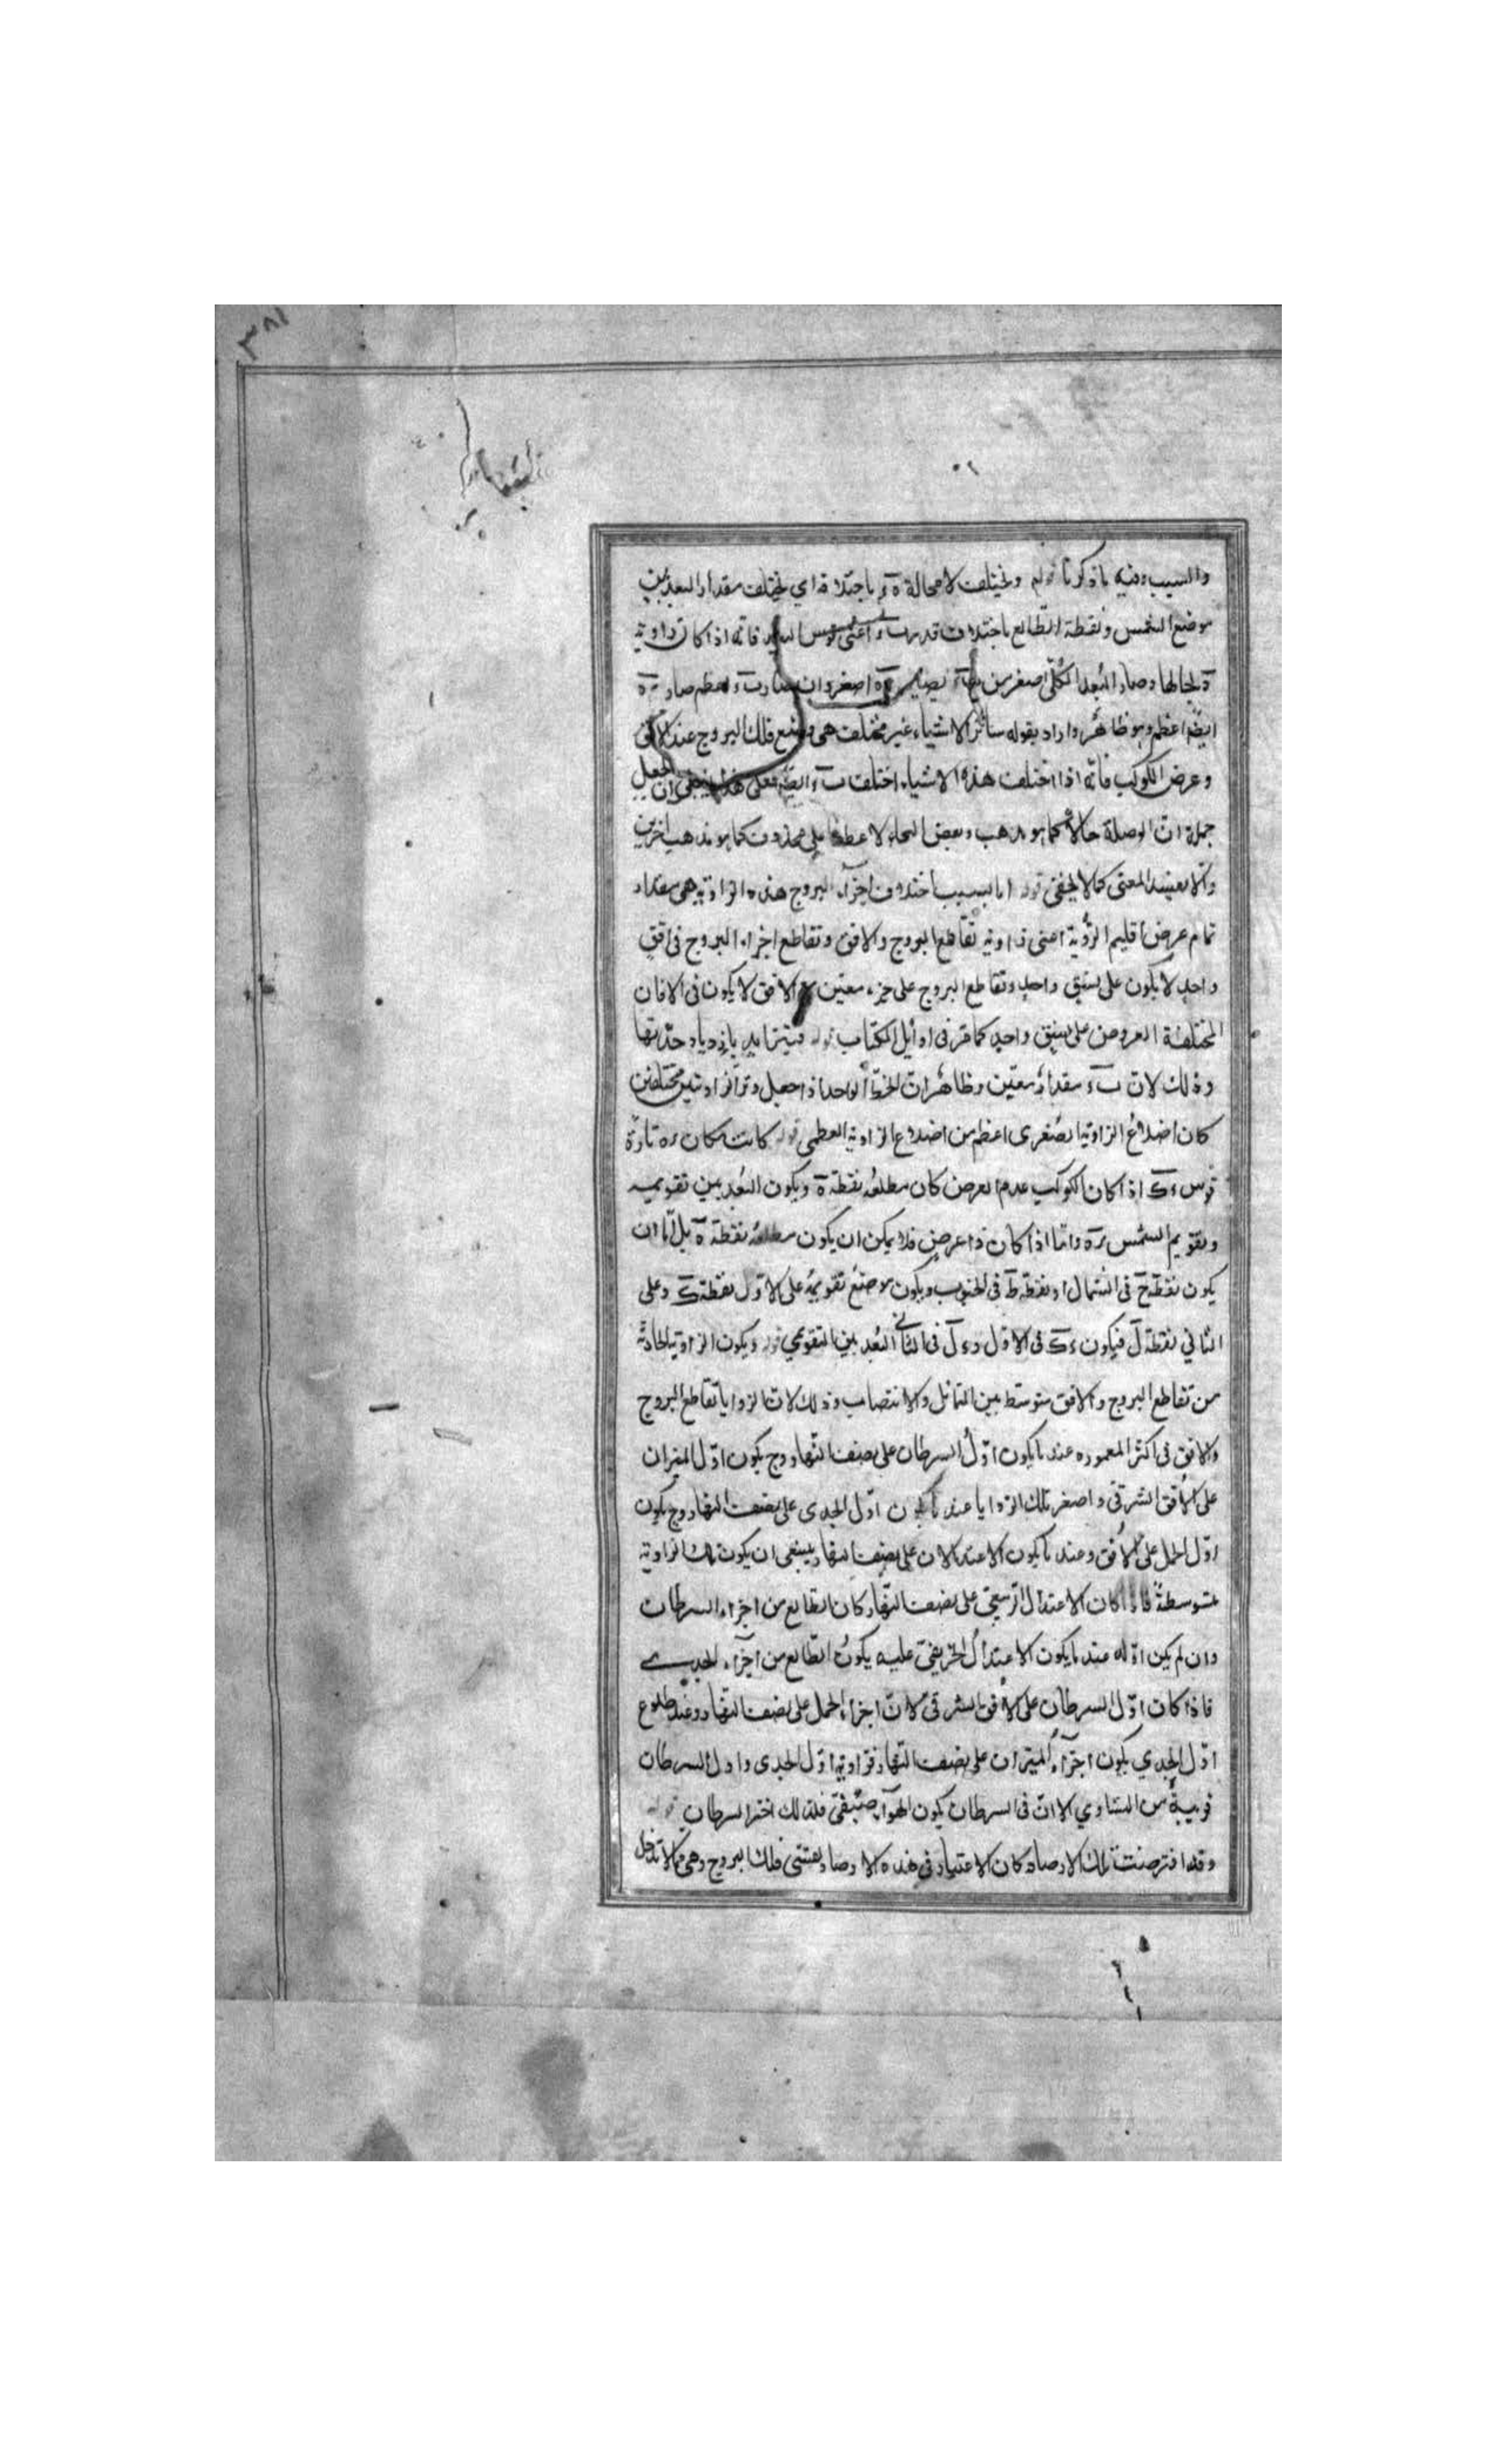 ٣٨١
والسبب فيه ما ذكرنا قوله ويختلف لا محالة هَ رَ باختلافه اي يختلف مقدار البعد بين
موضع الشمس ونقطة الطالع باختلاف قدر بَ ءَ اعنى قوس البعد فانه اذا كان زاوية
هَ بحالها وصار البُعد الكلّى اصغر من بَ ءَ يصير رَ هَ اصغر وان صارت بَ ءَ اعظم صار رَ هَ
ايضًا اعظم وهو ظاهر واراد بقوله سائر الاشياء غير مختلف هى وضع فلك البروج عند الافق
وعرض الكوكب فانه اذا اختلفت هذه الاشياء اختلفت بَ ءَ ايضًا فعلى هذا ينبغى ان يجعل
جملة انّ الوصلة حالا كما هو مذهب بعض النحاة لا عطفا على محذوف كما هو مذهب اخرين
والّا يفسد المعنى كما لا يخفى قوله اما بسبب اختلاف اجزاء البروج هذه الزاوية هى مقدار
تمام عرض اقليم الرؤية اعنى زاوية تقاطع البروج والافق وتقاطع اجزاء البروج فى افق
واحدٍ لا يكون على نسقٍ واحدٍ وتقاطع البروج على جزء معيّن مع الافق لا يكون فى الافاق
المختلفة العروض على نسقٍ واحدٍ كما مرّ فى اوائل الكتاب قوله فيتزايد بازدياد حدّتها
وذلك لانّ بَ ءَ مقدارٌ معيّن وظاهر ان الخط الواحد اذا جعل وتر الزاويتين مختلفتين
كان اضلاعُ الزاوية الصغرى اعظم من اضلاع الزاوية العظمى قوله كانت مكان رَه تارةً
قوس ءَ كَ اذا كان الكوكب عدم العرض كان مطلعُه نقطة هَ ويكون البُعد بين تقويمه
وتقويم الشمس رَهَ وامّا اذا كان ذا عرضٍ فلا يمكن ان يكون مطلعه نقطة هَ بل امّا ان
يكون نقطة حَ فى الشمال او نقطة طَ فى الجنوب ويكون موضع تقويمه على الاوّل نقطة كَ وعلى
الثانى نقطة لَ فيكون ءَ كَ فى الاوّل وءَ لَ فى الثانى البُعد بين التقويمى قوله ويكون الزاوية الحادثة
من تقاطع البروج والافق متوسّط بين التمائل والانتصاب وذلك لان الزوايا تقاطع البروج
والافق فى اكثر المعموره عند ما يكون اوّل السرطان على نصف النهار وح يكون اوّل الميزان
على الافق الشرقى واصغر تلك الزوايا عند ما يكون اوّل الجدى على نصف النهار وح يكون
اوّل الحمل على الافق وعند ما يكون الاعتدالان على نصف النهار ينبغى ان يكون تلك الزاوية
متوسطةً فاذا كان الاعتدال الربيعىّ على نصف النهار كان الطالع من اجزاء السرطان
وان لم يكن اوّله عند ما يكون الاعتدال الخريفىّ عليه يكون الطالع من اجزاء الجدى
فاذا كان اوّل السرطان على الافق الشرقى كان اجزاء الحمل على نصف النهار وعند طلوع
اوّل الجدى يكون اجزاء الميزان على نصف النهار فزاوية اوّل الجدى واول السرطان
قريبةٌ من التساوى الا ان فى السرطان يكون الهواء صيفىّ فلذلك اختر السرطان قوله
وقد افترضت تلك الارصاد كان الاعتبار فى هذه الارصاد بعشتى فلك البروج وهى ممّا لا تدخل